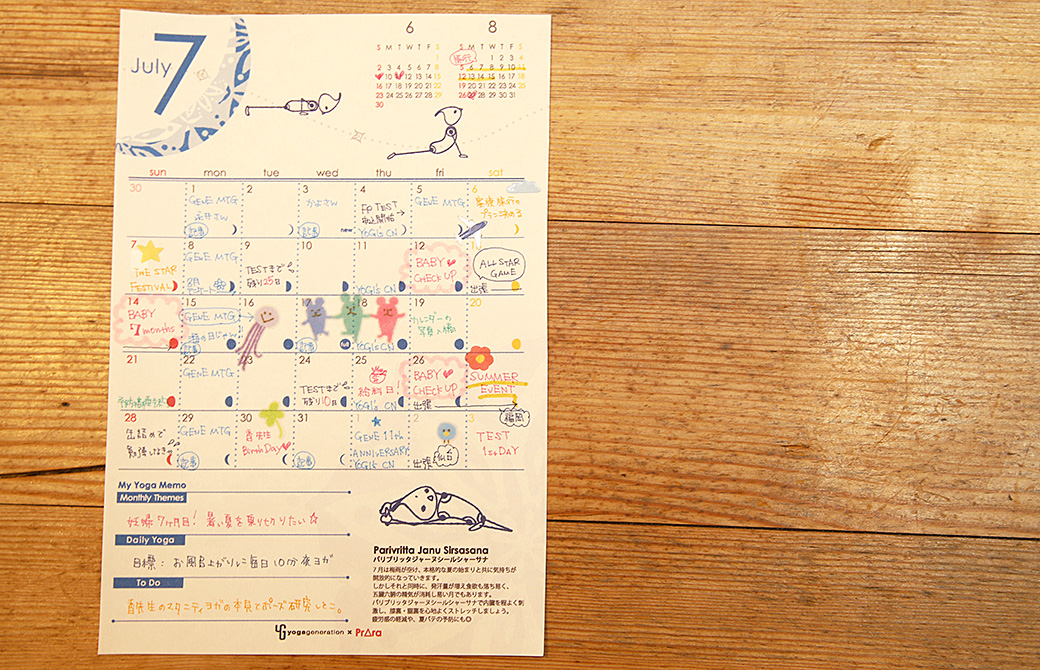 July 7
6
8
S M T W T F S
S M T W T F S
1
旅行
1 2 3 4
2 3 4 5 6 7 8
5 6 7 8 9 10 11
10 12 13 14 15
12 13 14 15 16 17 18
16 17 18 19 20 21 22
19 20 21 22 23 24 25
23 24 25 26 27 28 29
26 28 29 30 31
30
sun mon tue wed thu fri sat
30 1 2 3 4 5 6
GENE MTG
かよさん
FP TEST
申込開始→
GENE MTG
永井さん
記事
記事
new
YOGIS CN
7 8 9 10 11 12
THE STAR
FESTIVAL
GENE MTG
TESTまで
残り25日
YOGIS CN
BABY
CHECK UP
ALL STAR
GAME
出張
14 15 16 18 19 20
BABY
7 months
GENE MTG
記事
記事
full
YOGIS CN
カレンダーの
21 22 23 24 25 26
GENE MTG
TESTまで
残り10日
給料日!
YOGIS CN
BABY
CHECK UP
SUMMER
EVENT
出張
福岡
28 29 30 31 1 2 3
缶詰めで
GENE MTG
記事
Birth Day
記事
GENE 11th
ANNIVERSARY
YOGIS CN
出張
仙台
TEST
1st DAY
My Yoga Memo
Monthly Themes
妊婦7ヶ月目!暑い夏を乗りきりたい☆
Daily Yoga
目標: お風呂上がりに毎日10分夜ヨガ
To Do
先生のマタニティヨガの本見てポーズ研究しとこ。
Parivritta Janu Sirsasana
パリブリッタジャーヌシールシャーサナ
7月は梅雨が空け、本格的な夏の始まりと共に気持ちが
開放的になっていきます。
しかしそれと同時に、発汗量が増え食欲も落ち易く、
五臓六腑の精気が消耗し易い月でもあります。
パリブリッタジャーヌシールシャーサナで内臓を程よく刺
激し、腰裏・脇裏を心地よくストレッチしましょう。
疲労感の軽減や、夏バテの予防にも
yogageneration × PrAra